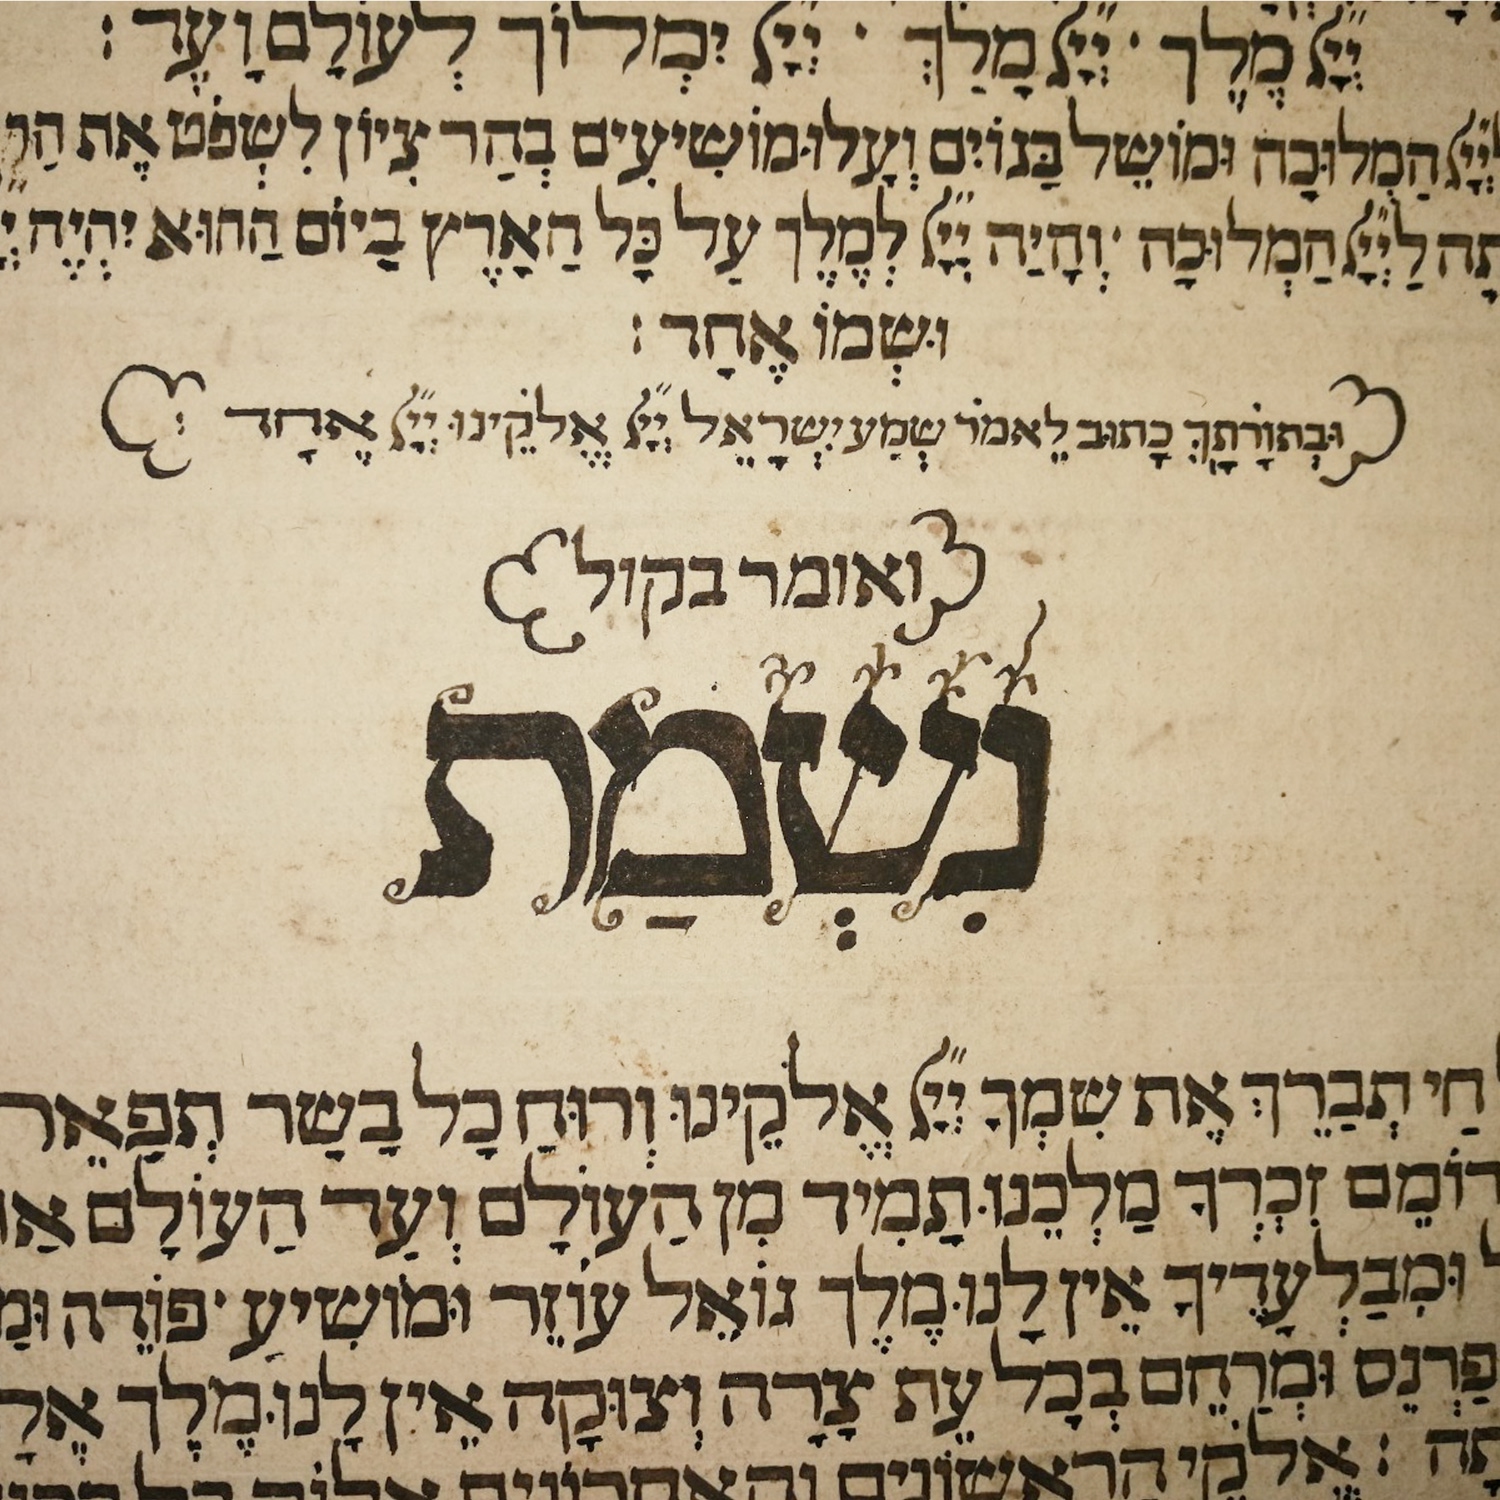 יְיָ מֶלֶך · יְיָ מָלַךְ · יְיָ יִמְלוֹך לְעוֹלָם וָעֶד :
לַיְיָ הַמְלוּכָה וּמוֹשֵל בַּגוֹיִם וְעָלוּ מוֹשִיעִים בְּהַר צִיוֹן לִשְפֹּט אֶת
לַיְיָ הַמְלוּכָה · וְהָיָה יְיָ לְמֶלֶך עַל כָּל הַאָרֶץ בַּיוֹם הַהוּא יִהְיֶה
וּשְמוֹ אֶחָד :
וּבְתוֹרָתְךָ כָתוּב לֵאמֹר שְמַע יִשְרָאֵל יְיָ אֱלֹקֵינוּ יְיָ אֶחָד :
ואומר בקול
נִשְׁמַת
חַי תְבָרֵךְ אֶת שִמְךָ יְיָ אֱלֹקֵינוּ וְרוּחַ כָל בָשָר תְפָאֵר
זִכְרְךָ מַלְכֵנוּ תָמִיד מִן הַעוֹלָם וְעַד הַעוֹלָם
וּמִבַלְעָדֶיךָ אֵין לָנוּ מֶלֶך גוֹאֵל עוֹזֵר וּמוֹשִיעַ · פּוֹדֶה
וּמְרַחֵם בְכָל עֵת צָרָה וְצוּקָה אֵין לָנוּ מֶלֶך
: אֱלֹקֵי הָרִאשוֹנִים וְהָאַחֲרוֹנִים